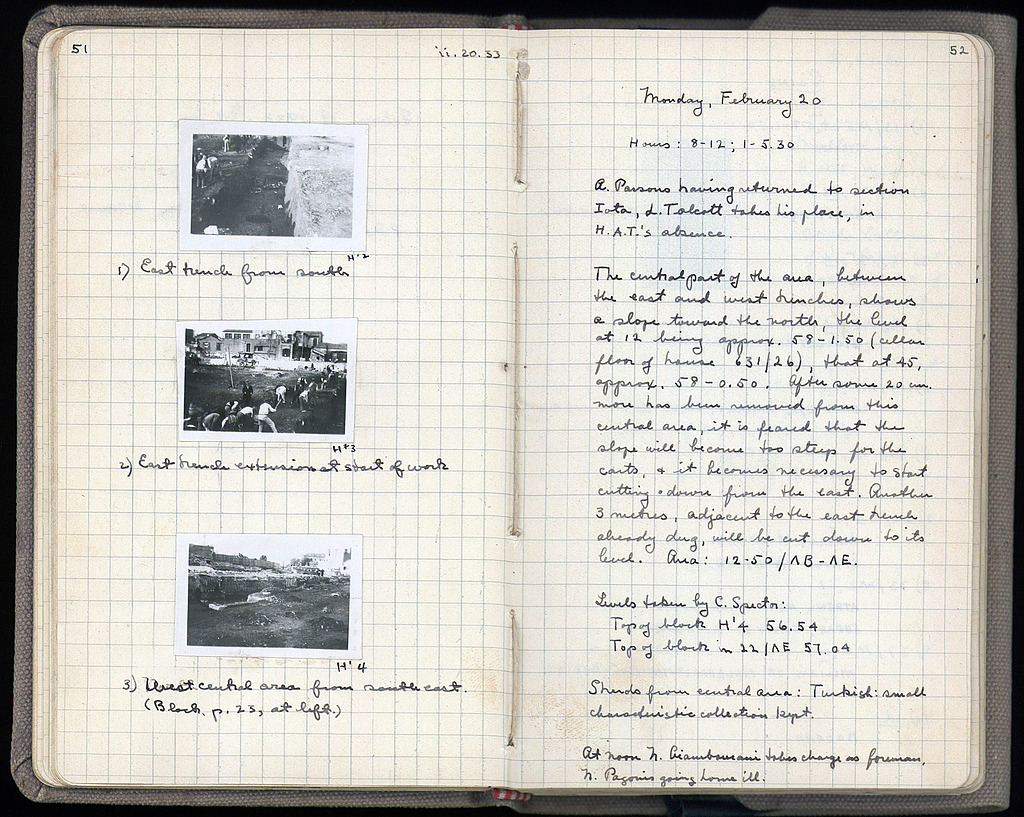 51
ii.20.33
H'2
1) East trench from south
H'3
2) East trench extension at start of work
H'4
3) West central area from southeast.
(Block, p. 23, at left.)
52
Monday, February 20
Hours: 8-12; 1-5.30
A. Parsons having returned to section
Iota, L. Talcott takes his place, in
H.A.T.'s absence.
The central part of the area, between
the east and west trenches, shows
a slope toward the north, the level
at 12 being approx. 58-1.50 (cellar
floor of house 631/26), that at 45,
approx. 58-0.50. After some 20 cm.
more has been removed from this
central area, it is feared that the
slope will become too steep for the
carts, & it becomes necessary to start
cutting down from the east. Another
3 metres, adjacent to the east trench
already dug, will be cut down to its
level. Area: 12-50/ΛΒ-ΛΕ.
Levels taken by C. Spector:
Top of block H'4 56.54
Top of block in 22/ΛΕ 57.04
Sherds from central area: Turkish: small
characteristic collection kept.
At noon N. takes charge as foreman,
N. going home ill.